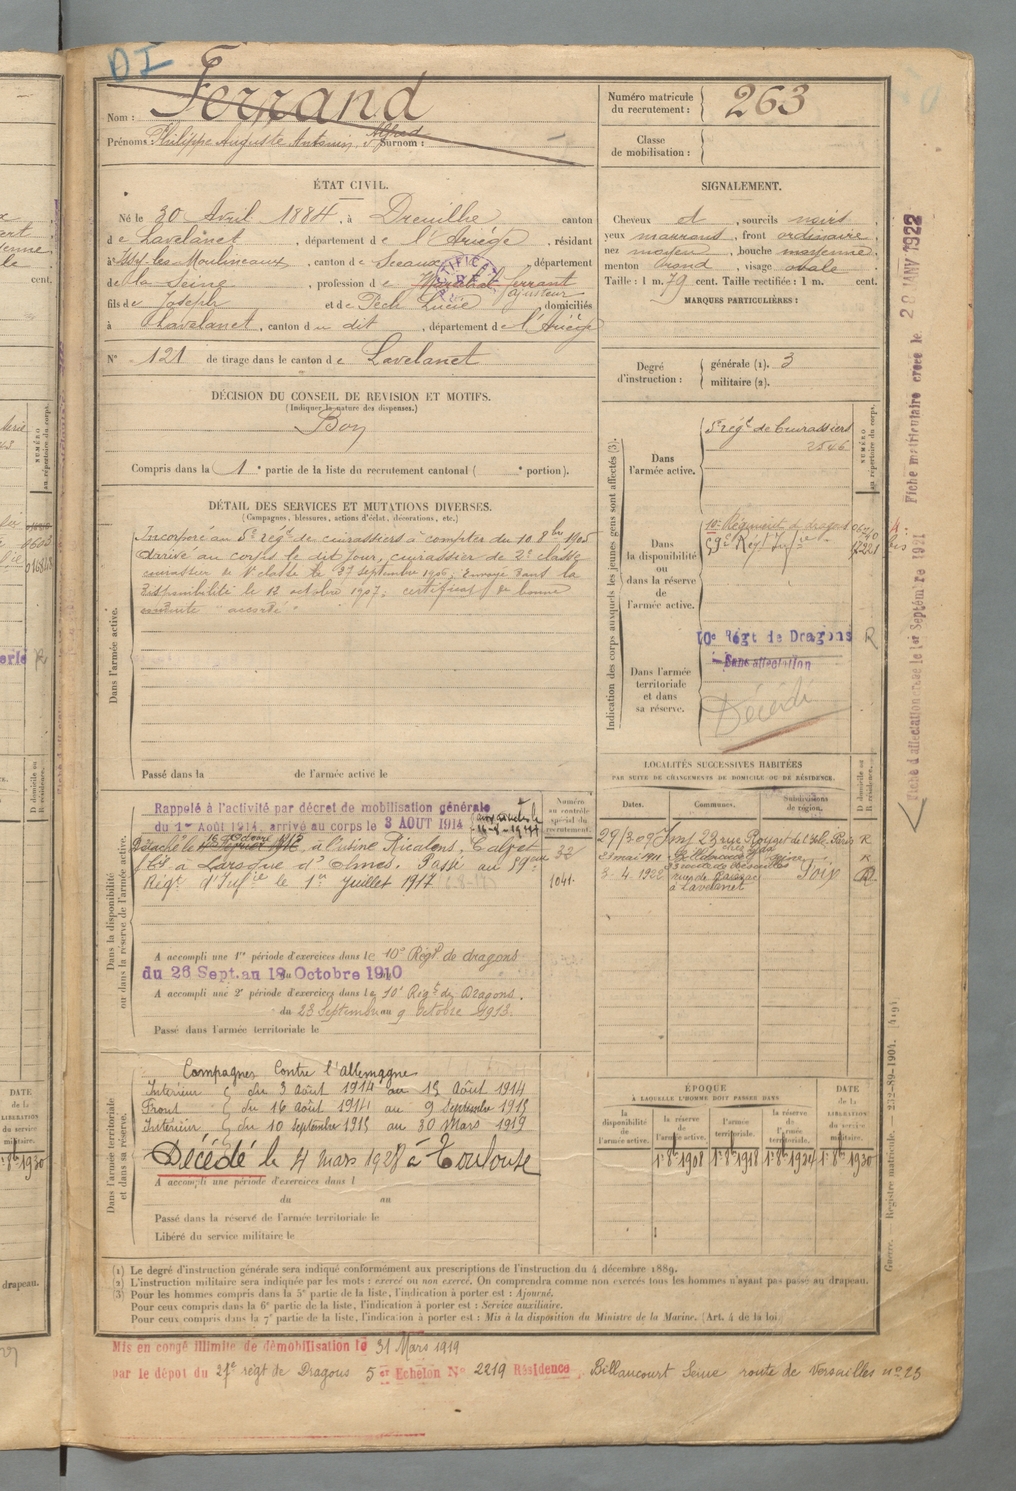 DI
Nom : Ferrand
Prénoms : Philippe Auguste Antonin Alfred Surnom :
Numéro matricule du recrutement : 263
Classe de mobilisation :
ÉTAT CIVIL.
Né le 30 Avril 1884, à Dreuilhe canton
de Lavelanet, département de l'Ariège, résidant
à Issy-les-Moulineaux, canton de Sceaux, département
de la Seine, profession de ferrant
ajusteur
fils de Joseph et de Pech Lucie, domiciliés
à Lavelanet, canton du dit, département de l'Ariège
N° 121 de tirage dans le canton de Lavelanet
SIGNALEMENT.
Cheveux et, sourcils noirs
yeux marrons, front ordinaire
nez moyen, bouche moyenne
menton rond, visage ovale
Taille : 1 m. 79 cent. Taille rectifiée : 1 m. cent.
MARQUES PARTICULIÈRES :
Degré d'instruction : générale (1). 3
militaire (2).
DÉCISION DU CONSEIL DE REVISION ET MOTIFS.
(Indiquer la nature des dispenses.)
Bon
Compris dans la 1e partie de la liste du recrutement cantonal ( e portion).
DÉTAIL DES SERVICES ET MUTATIONS DIVERSES.
(Campagnes, blessures, actions d'éclat, décorations, etc.)
Dans l'armée active.
Incorporé au 5e régt de cuirassiers à compter du 10 8bre 1905
Arrivé au corps le dit jour, cuirassier de 2e classe
cuirassier de 1e classe le 27 septembre 1906. Envoyé dans la
disponibilité le 12 octobre 1907; certificat de bonne
conduite "accordé"
Passé dans la de l'armée active le
Indication des corps auxquels les jeunes gens sont affectés (3).
NUMÉRO au répertoire du corps.
Dans l'armée active.
5e régt de Cuirassiers
2546
Dans la disponibilité ou dans la réserve de l'armée active.
10e Régiment de dragons
59e Regt Infie
Dans l'armée territoriale et dans sa réserve.
10e Régt de Dragons R
Sans affectation
Décédé
Fiche d'affectation créée le 1er Septembre 1921 Fiche matriculaire créée le 20 JANV 1922
LOCALITÉS SUCCESSIVES HABITÉES
PAR SUITE DE CHANGEMENTS DE DOMICILE OU DE RÉSIDENCE.
Dates. Communes. Subdivisions de région. D domicile ou R résidence.
29/3.09 Issy 23 rue Rouget de l'Isle Paris R
23 mai 1911 Billancourt Seine R
23 route de Versailles
3-4.1922 à Lavelanet Foix
Dans la disponibilité ou dans la réserve de l'armée active.
Rappelé à l'activité par décret de mobilisation générale
du 1er Août 1914, arrivé au corps le 3 AOUT 1914
Détaché le à l'usine Ricalens, Calvet
à Laroque d'Olmes. Passé au 59eme
Régt d'Infie le 1er Juillet 1917
Numéro au contrôle spécial du recrutement.
32
1041
A accompli une 1re période d'exercices dans le 10e Régt de dragons
du 26 Sept. au 18 Octobre 1910
A accompli une 2e période d'exercices dans le 10e Régt de Dragons.
du 23 Septembre au 9 Octobre 1913
Passé dans l'armée territoriale le
Dans l'armée territoriale et dans sa réserve.
Campagnes Contre l'Allemagne
Intérieur du 3 Août 1914 au 15 Août 1914
Front du 16 Août 1914 au 9 Septembre 1915
Intérieur du 10 Septembre 1915 au 30 Mars 1919
Décédé le 4 mars 1928 à Toulouse
A accompli une période d'exercices dans l
du au
Passé dans la réserve de l'armée territoriale le
Libéré du service militaire le
ÉPOQUE
À LAQUELLE L'HOMME DOIT PASSER DANS
la disponibilité de l'armée active. la réserve de l'armée active. l'armée territoriale. la réserve de l'armée territoriale. DATE de la LIBÉRATION du service militaire.
1er 8bre 1908 1er 8bre 1918 1er 8bre 1924 1er 8bre 1930
(1) Le degré d'instruction générale sera indiqué conformément aux prescriptions de l'instruction du 4 décembre 1889.
(2) L'instruction militaire sera indiquée par les mots : exercé ou non exercé. On comprendra comme non exercés tous les hommes n'ayant pas passé au drapeau.
(3) Pour les hommes compris dans la 5e partie de la liste, l'indication à porter est : Ajourné.
Pour ceux compris dans la 6e partie de la liste, l'indication à porter est : Service auxiliaire.
Pour ceux compris dans la 7e partie de la liste, l'indication à porter est : Mis à la disposition du Ministre de la Marine. (Art. 4 de la loi
Guerre. Registre matricule. — 232-89-1904. [419].
Mis en congé illimité de démobilisation le 31 Mars 1919
par le dépôt du régt de Dragons 5 Echelon N° 2219 Résidence Billancourt Seine route de Versailles n° 23